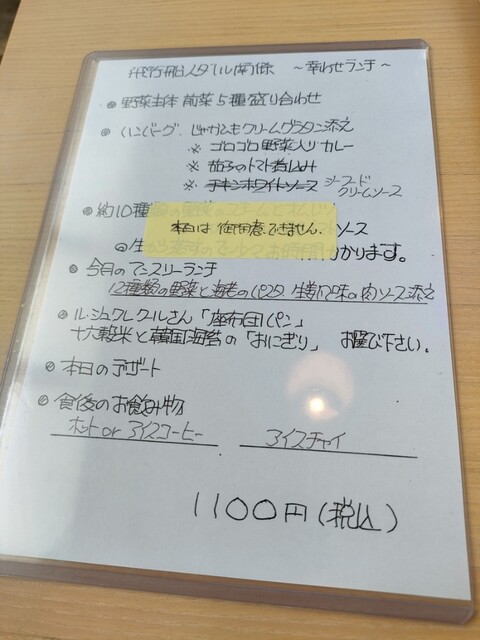 飛行船スタイル南條 ～幸わせランチ～
◎ 野菜主体 前菜5種盛り合わせ
◎ ハンバーグ、じゃがいもクリームグラタン添え
※ ゴロゴロ野菜入りカレー
※ 茄子のトマト煮込み
※ チキンホワイトソース シーフードクリームソース
◎ 約10種類の
本日は御用意できません。
ソース
かかります。
◎ 今月のマンスリーランチ
12種類の野菜と海老のパスタ 生姜味の肉ソース添え
◎ ル・シュクレクールさん「座布団パン」
十六穀米と韓国海苔の「おにぎり」 お選び下さい。
◎ 本日のデザート
◎ 食後のお飲み物
ホット or アイスコーヒー アイスチャイ
1100円(税込)